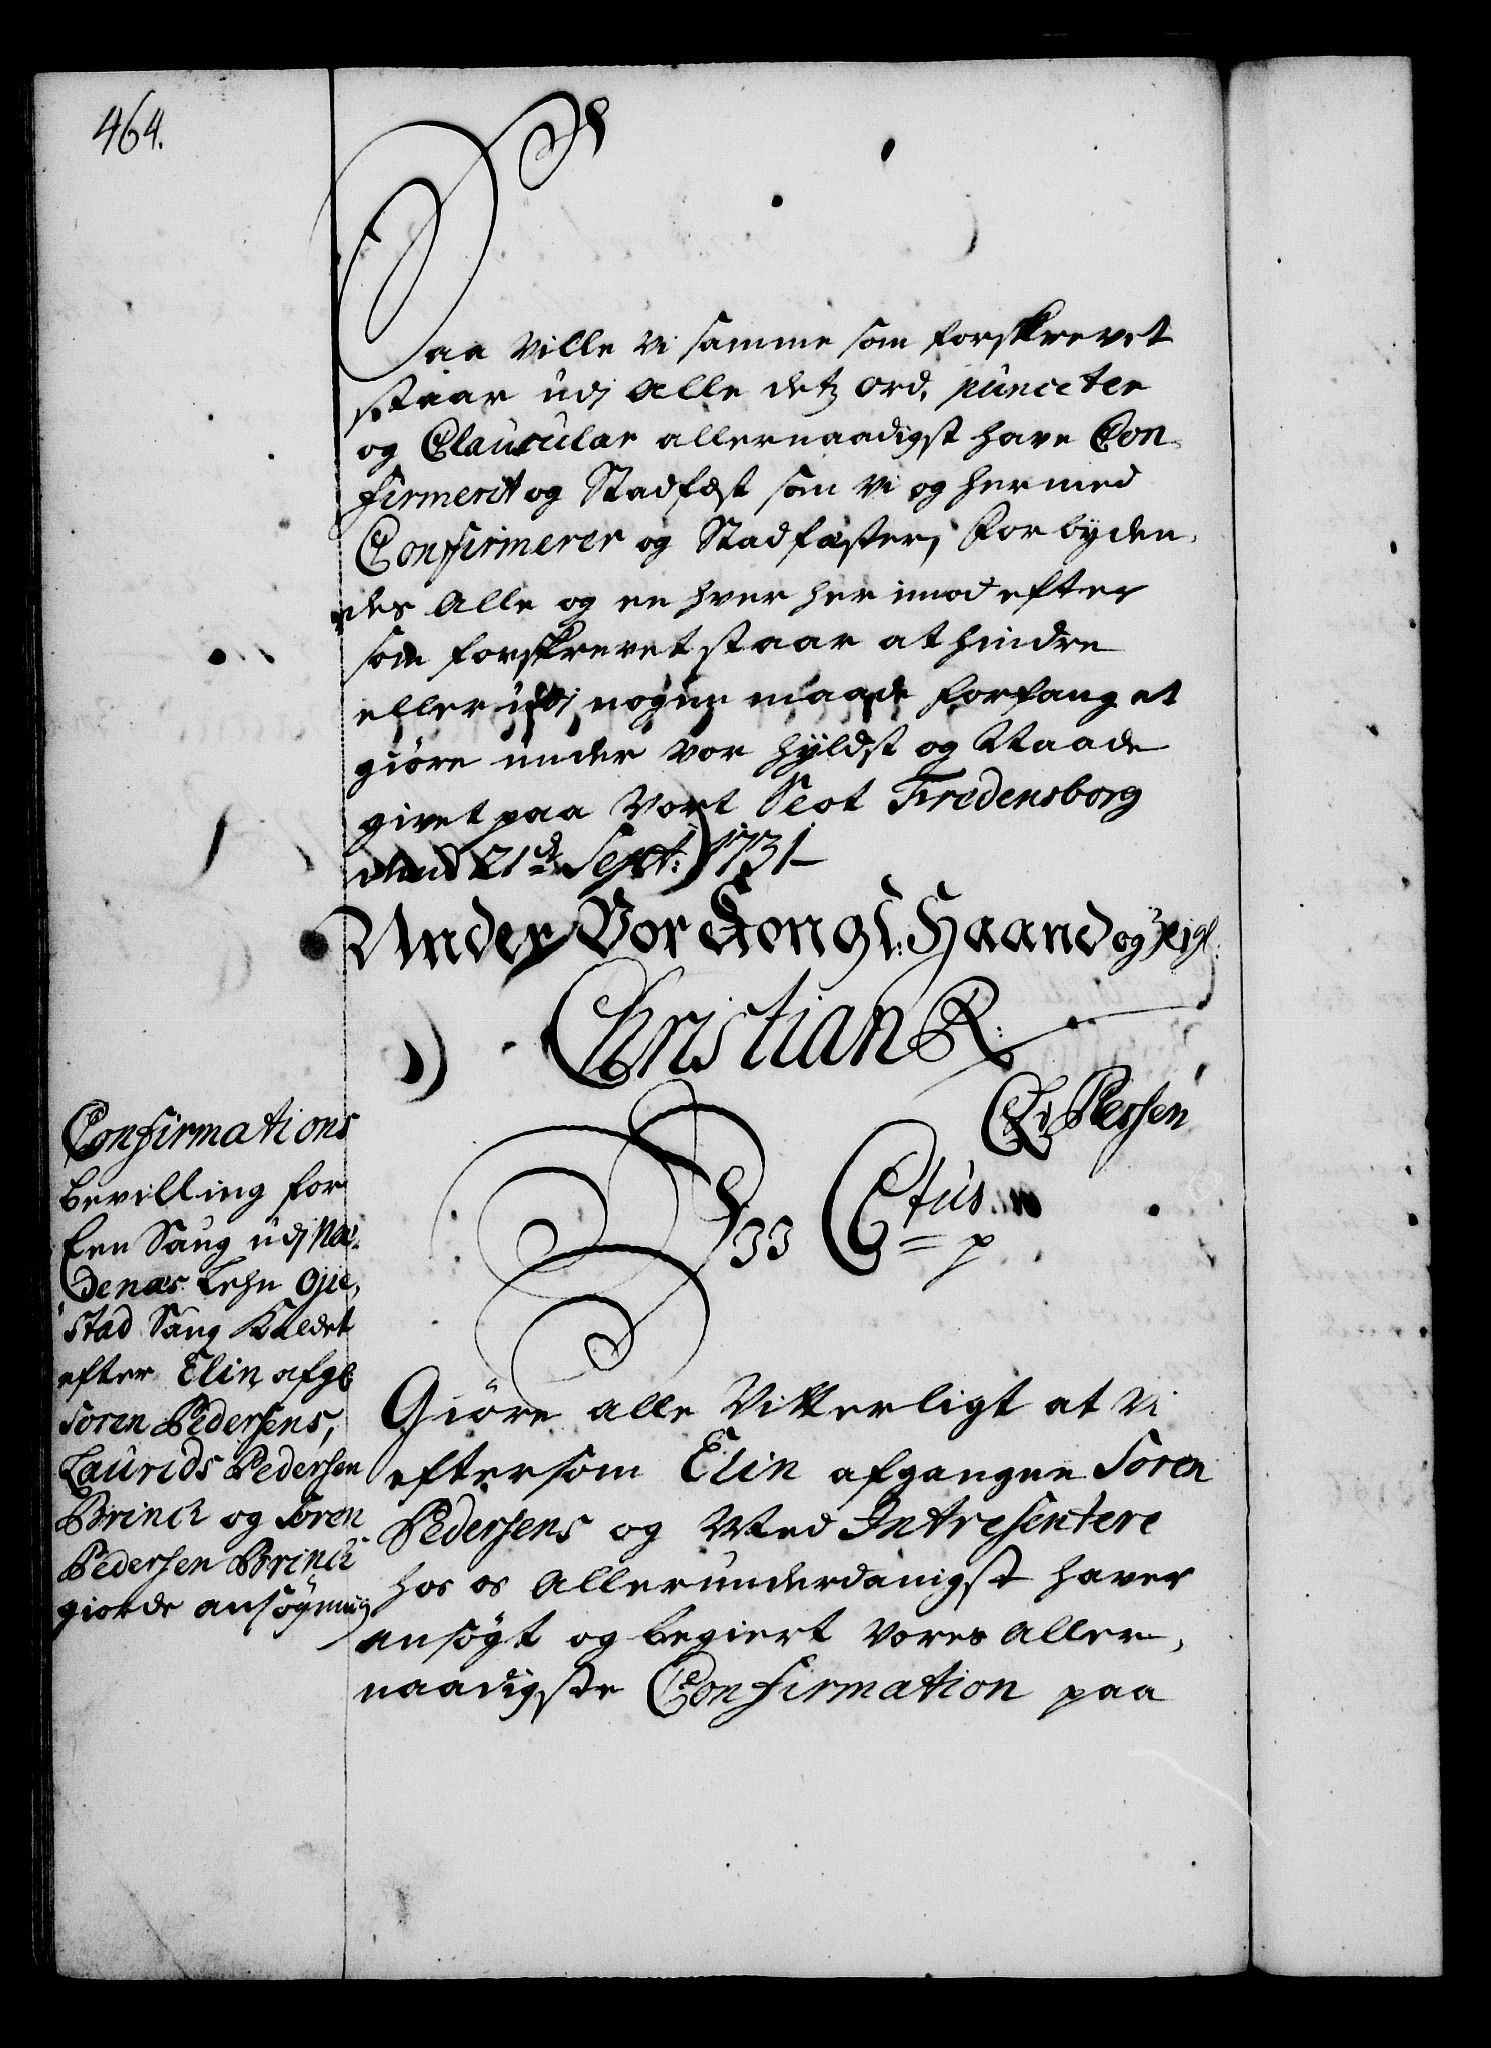 464.
Saa ville Vi samme som forskrevet
staar udj Alle detz Ord, puncter
og Clausuler allernaadigst have Con-
firmerit og Stadfæst som Vi og hermed
Confirmerer og Stadfæster, Forbyden-
des Alle og en hver her imod efter
som forskrevet staar at hindre
eller udj nogen maade forfang at
giöre under vor hyldst og Naade
givet paa Vort Slot Fredensborg
dend 21de Sept: 1731
Under Vor Kongl: Haand og Zigl:
Christian R:
CA v Plessen
Wj C 6tus
p
Confirmations
bevilling for
Een Saug udj Ne-
denæs Lehn Øje-
stad Saug Kaldet
efter Elin afg:
Soren Pedersens,
Laurids Pedersen
Brinch og Soren
Pedersen Brinch
giorde ansøgning
Giöre alle Vitterligt at Vi
eftersom Elin afgangne Soren
Pedersens og Med Intresentere
hos os Allerunderdanigst haver
ansögt og begiert Vores Aller-
naadigste Confirmation paa